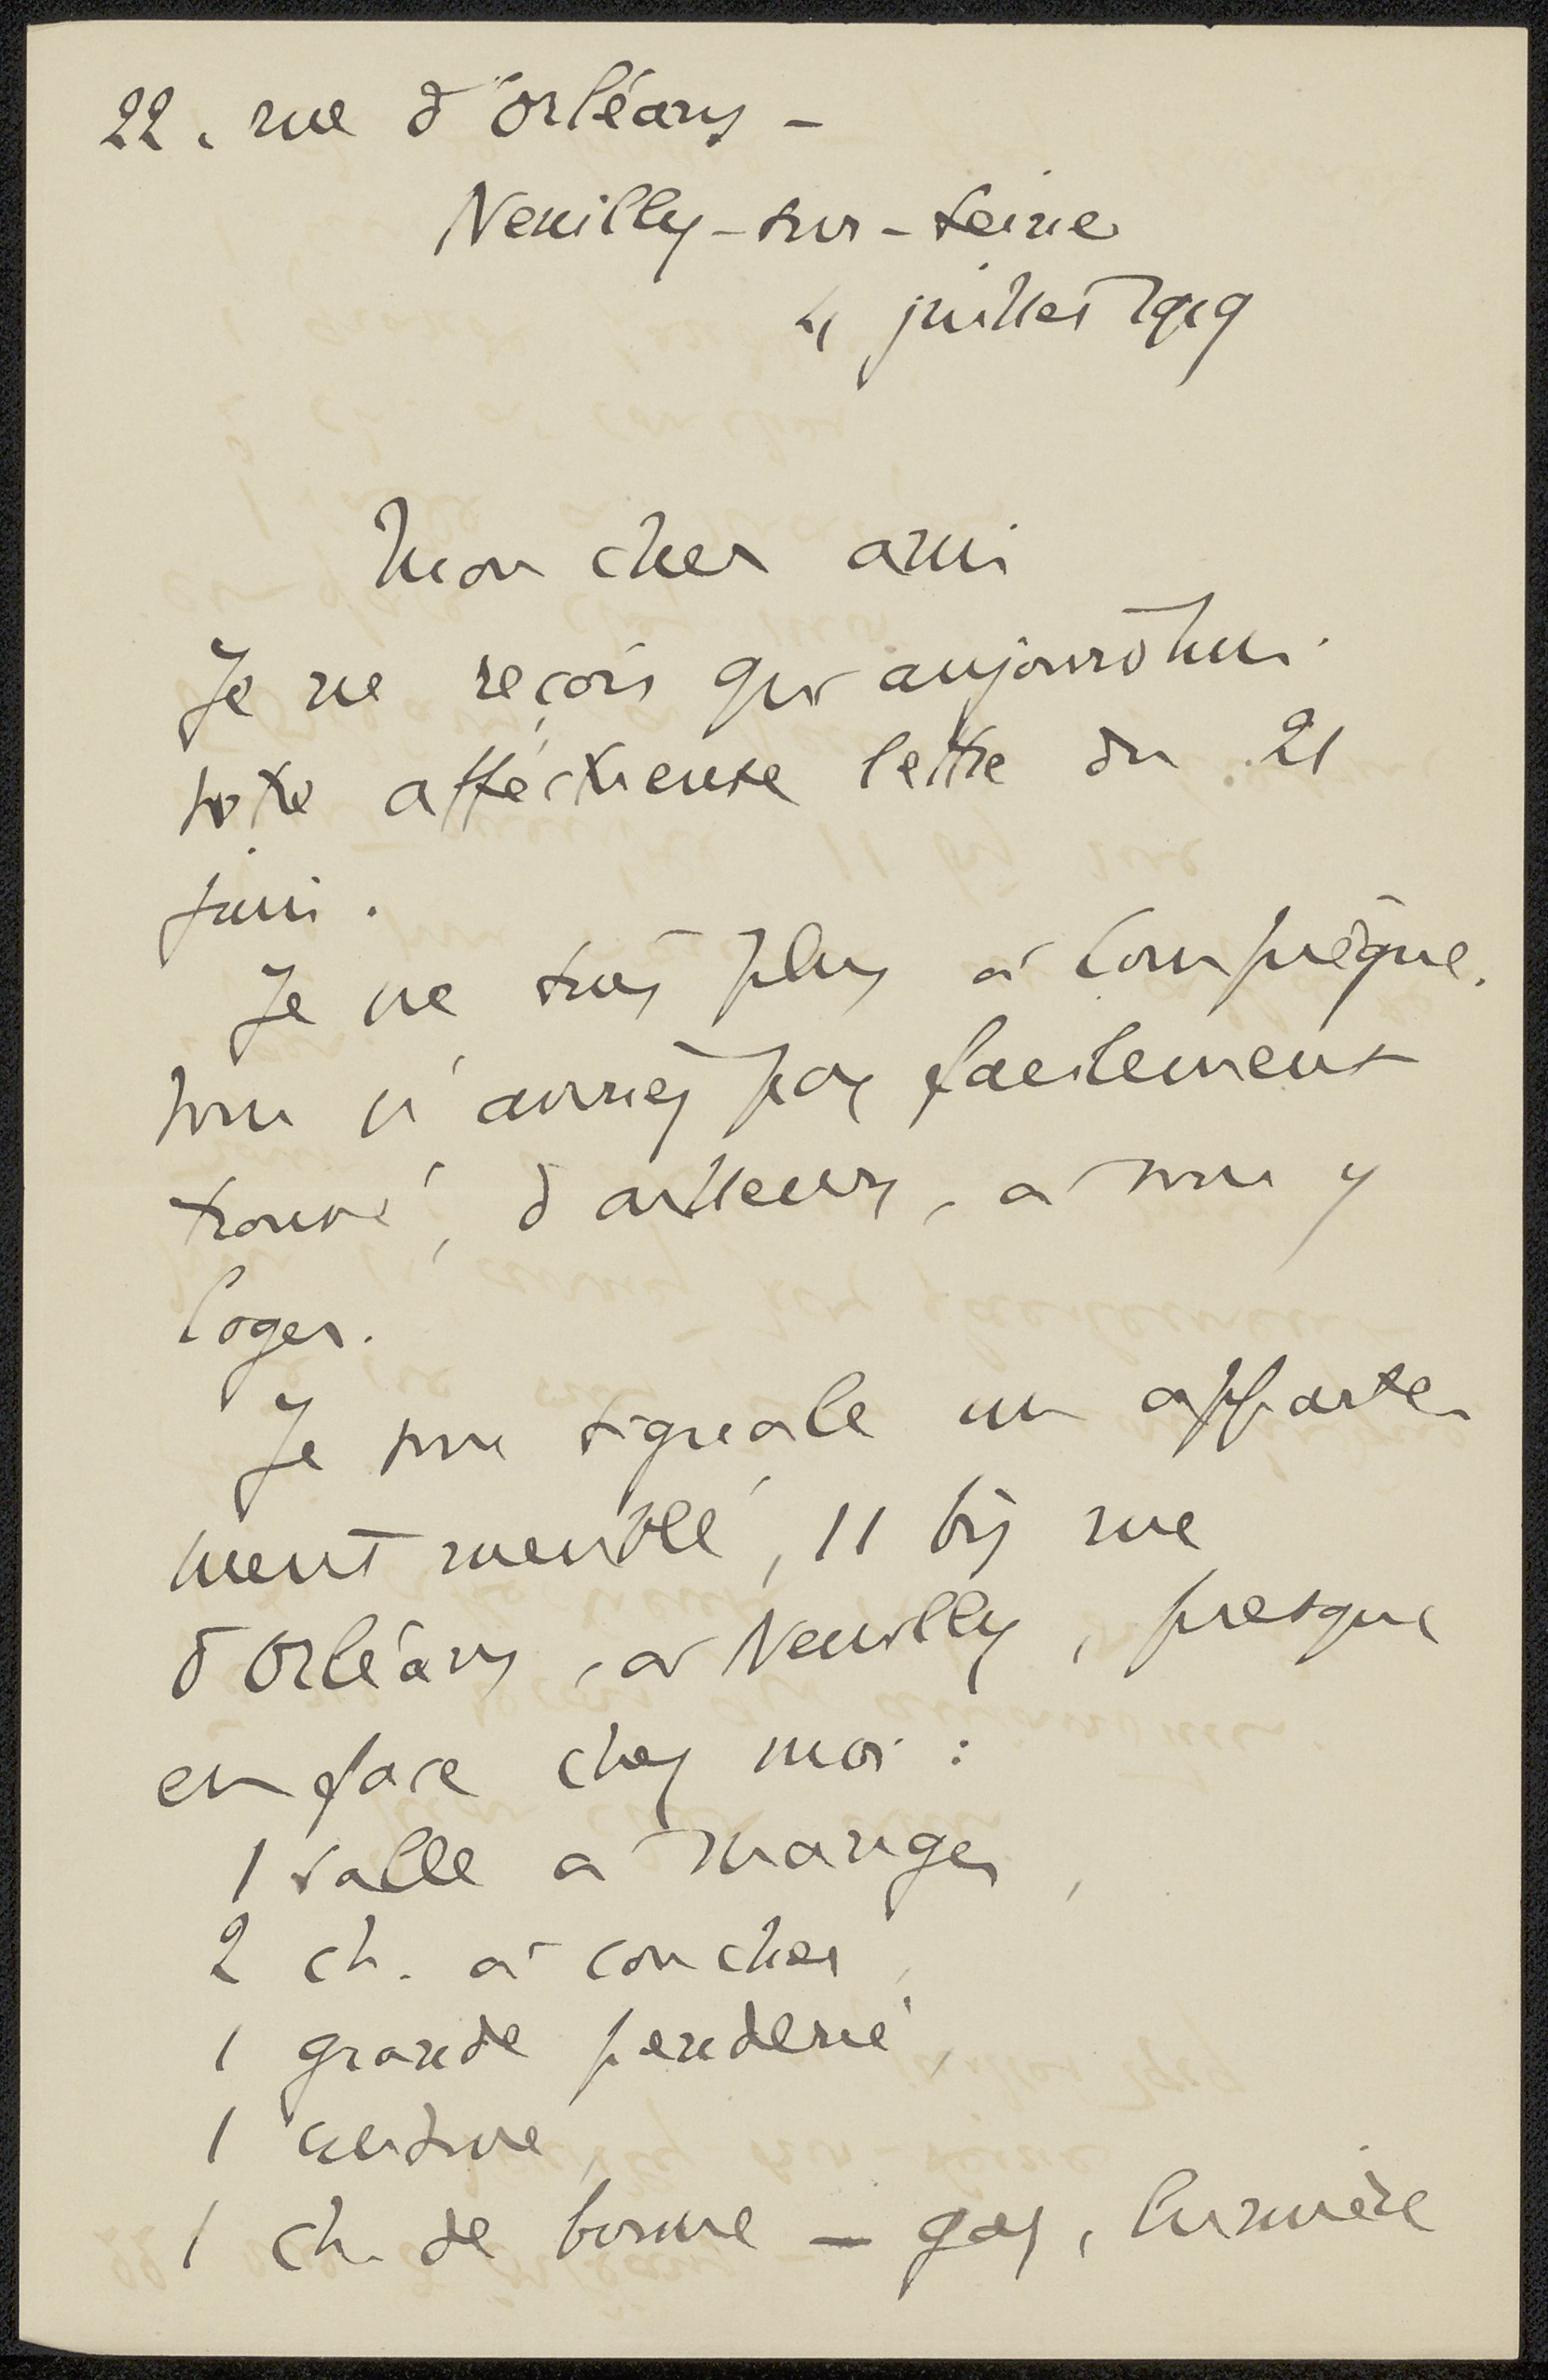 22, rue d'Orléans -
Neuilly-sur-Seine
4 juillet 1919
Mon cher ami
Je ne reçois qu'aujourd'hui
votre affectueuse lettre du 21
juin.
Je ne suis plus à Compiègne.
Vous n'auriez pas facilement
trouvé, d'ailleurs, à vous y
loger.
Je vous signale un apparte
ment meublé, 11 bis rue
d'Orléans, à Neuilly, presque
en face chez moi :
1 salle à manger,
2 ch. à coucher,
1 grande penderie,
1 cuisine,
1 ch. de bonne - gaz, lumière